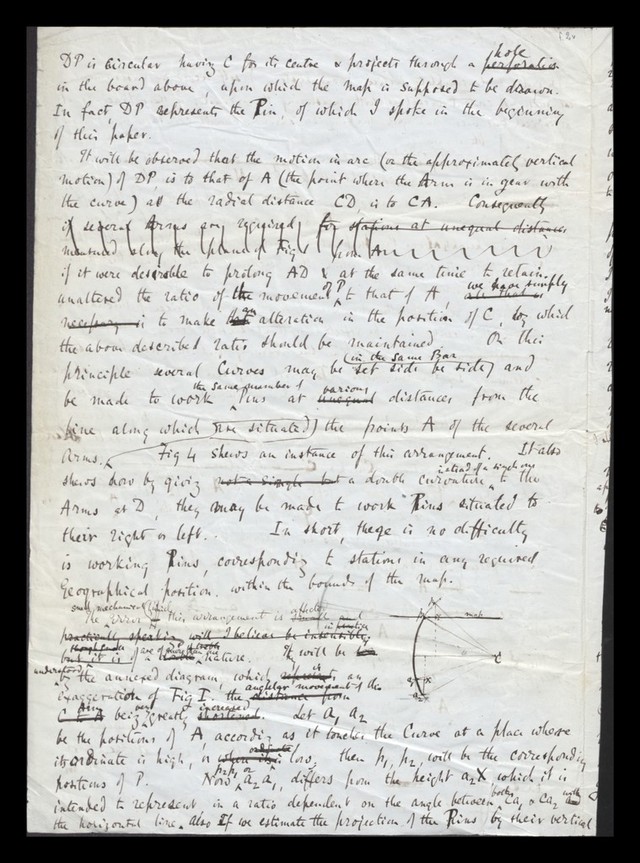 DP is circular having C for its centre & projects through a perforation hole
in the board above, upon which the map is supposed to be drawn.
In fact, DP represents the Pin, of which I spoke in the beginning
of this paper.
It will be observed that the motion in arc (or the approximately vertical
motion) of DP, is to that of A (the point where the Arm is in gear with
the curve) as the radial distance CD, is to CA. Consequently
if several Arms are required, for stations at unequal distances
measured along the plane of Fig 1 from A
if it were desirable to prolong AD & at the same time to retain
unaltered the ratio of the movement of P to that of A, all that is we have simply
necessary is to make an alteration in the position of C, by which
the above described ratio should be maintained On this
principle several Curves may be set side by side (in the same Bar) and
be made to work the same number of Pins at unequal various distances from the
line along which are situated) the points A of the several
Arms. Fig 4 shews an instance of this arrangement. It also
shews how by giving not a single but a double curvature, instead of a single one to the
Arms at D, they may be made to work Pins situated to
their right or left.. In short, there is no difficulty
in working Pins, corresponding to stations in any required
Geographical position, within the bounds of the map.
The small mechanical error this arrangement is and
practically speaking will I believe be
but it is of a nature. It will be
understood by the annexed diagram, which is an
exaggeration of Fig I, the distance from angular movement of the
C to A Arm being very greatly shortened increased. Let a, a2
be the positions of A, according as it touches the Curve at a place where
its ordinate is high, or low, then p1, p2, will be the corresponding
positions of P. Now a2 a1, differs from the height a2X which it is
intended to represent in a ratio dependent on the angle between both Ca1 & Ca2 with
the horizontal line. Also if we estimate the projection of the Pins by their vertical
map
A
C
X